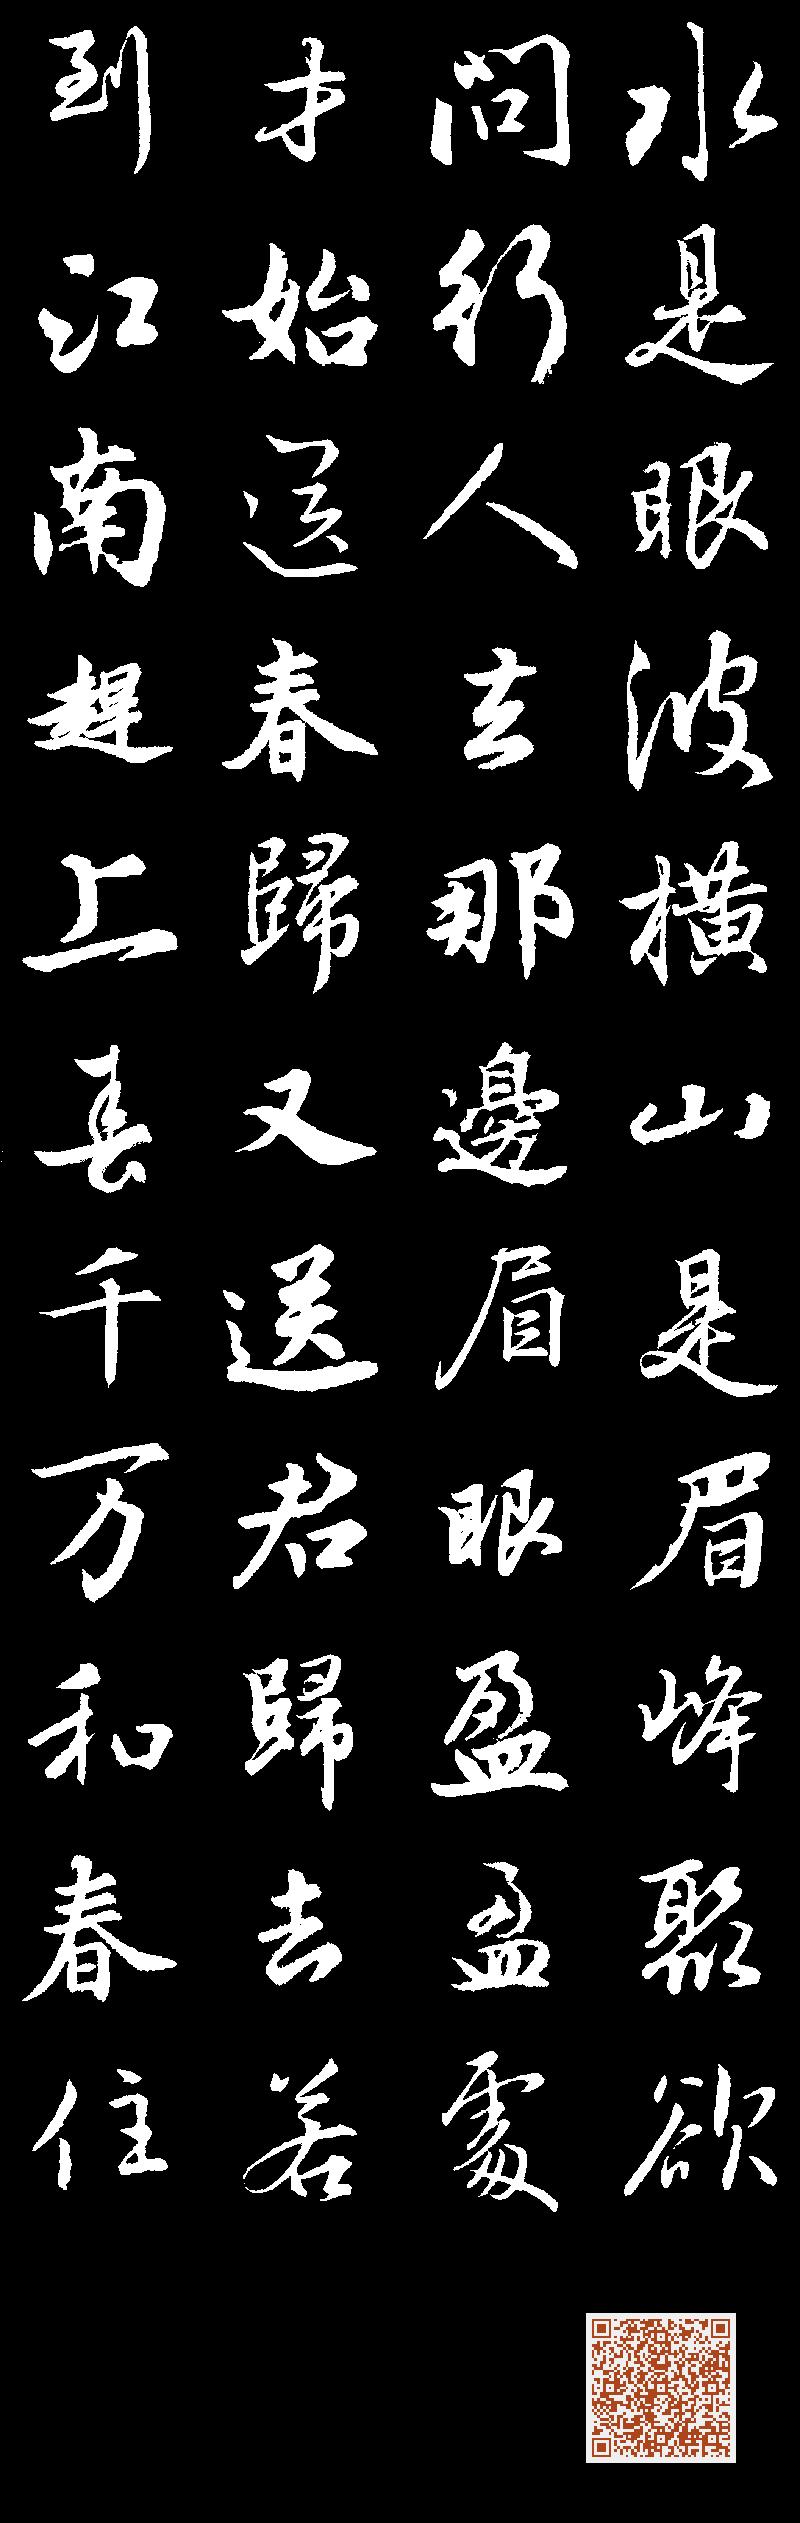 水是眼波橫山是眉峰聚欲
問行人去那邊眉眼盈盈處
才始送春歸又送君歸去若
到江南趕上春千万和春住